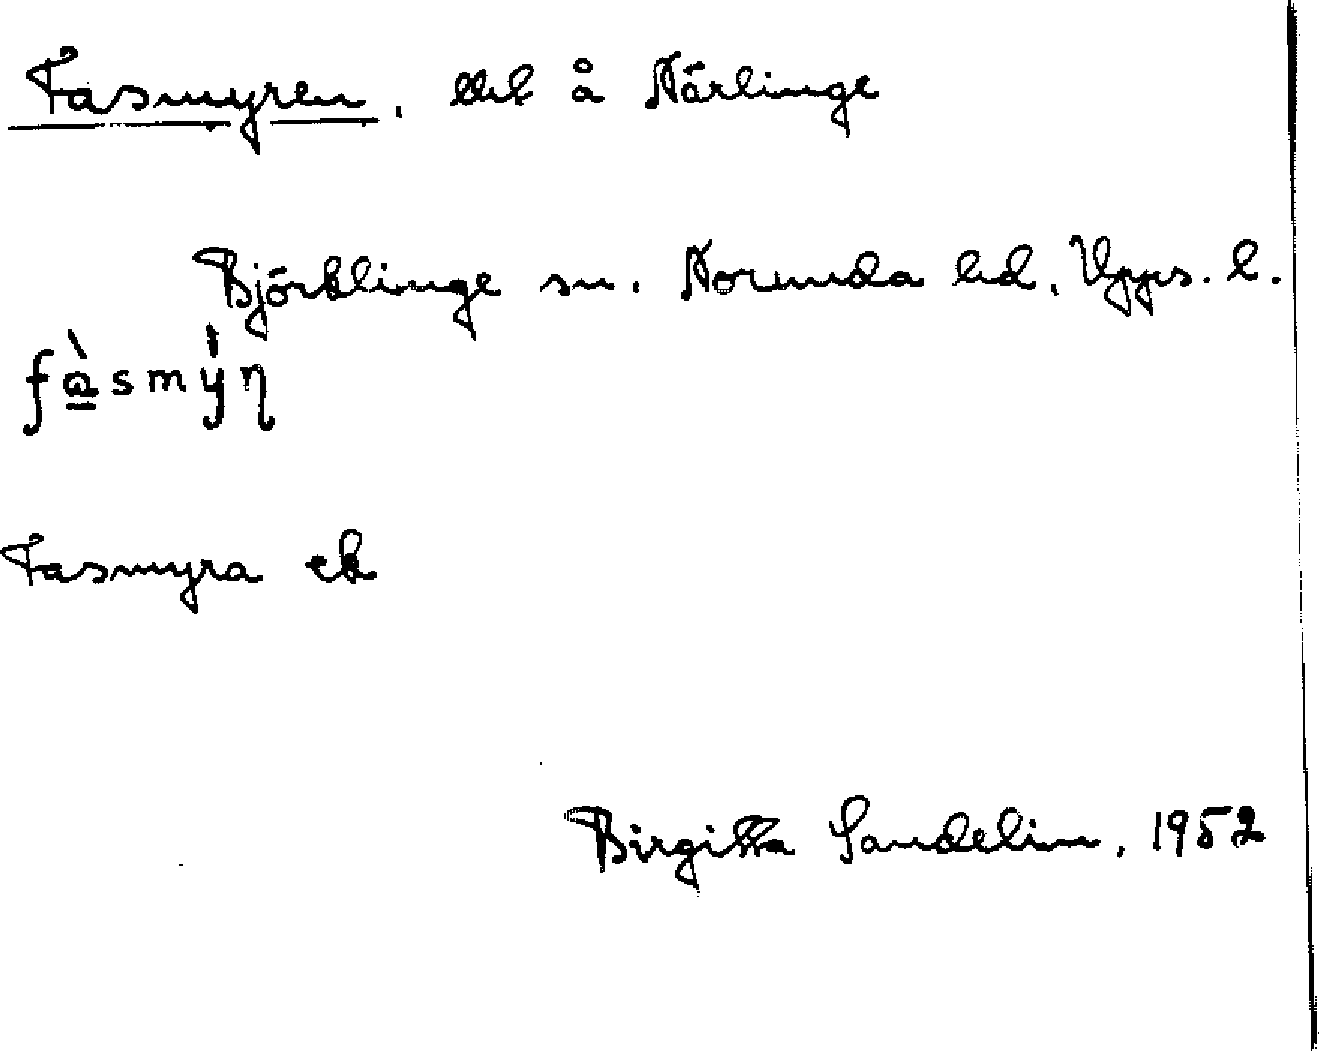 Fasmyren, del å Närlinge
Björklinge sn. Norunda hd, Upps. l.
fàsmýn
Fasmyra ek
Birgitta Sandelin, 1952